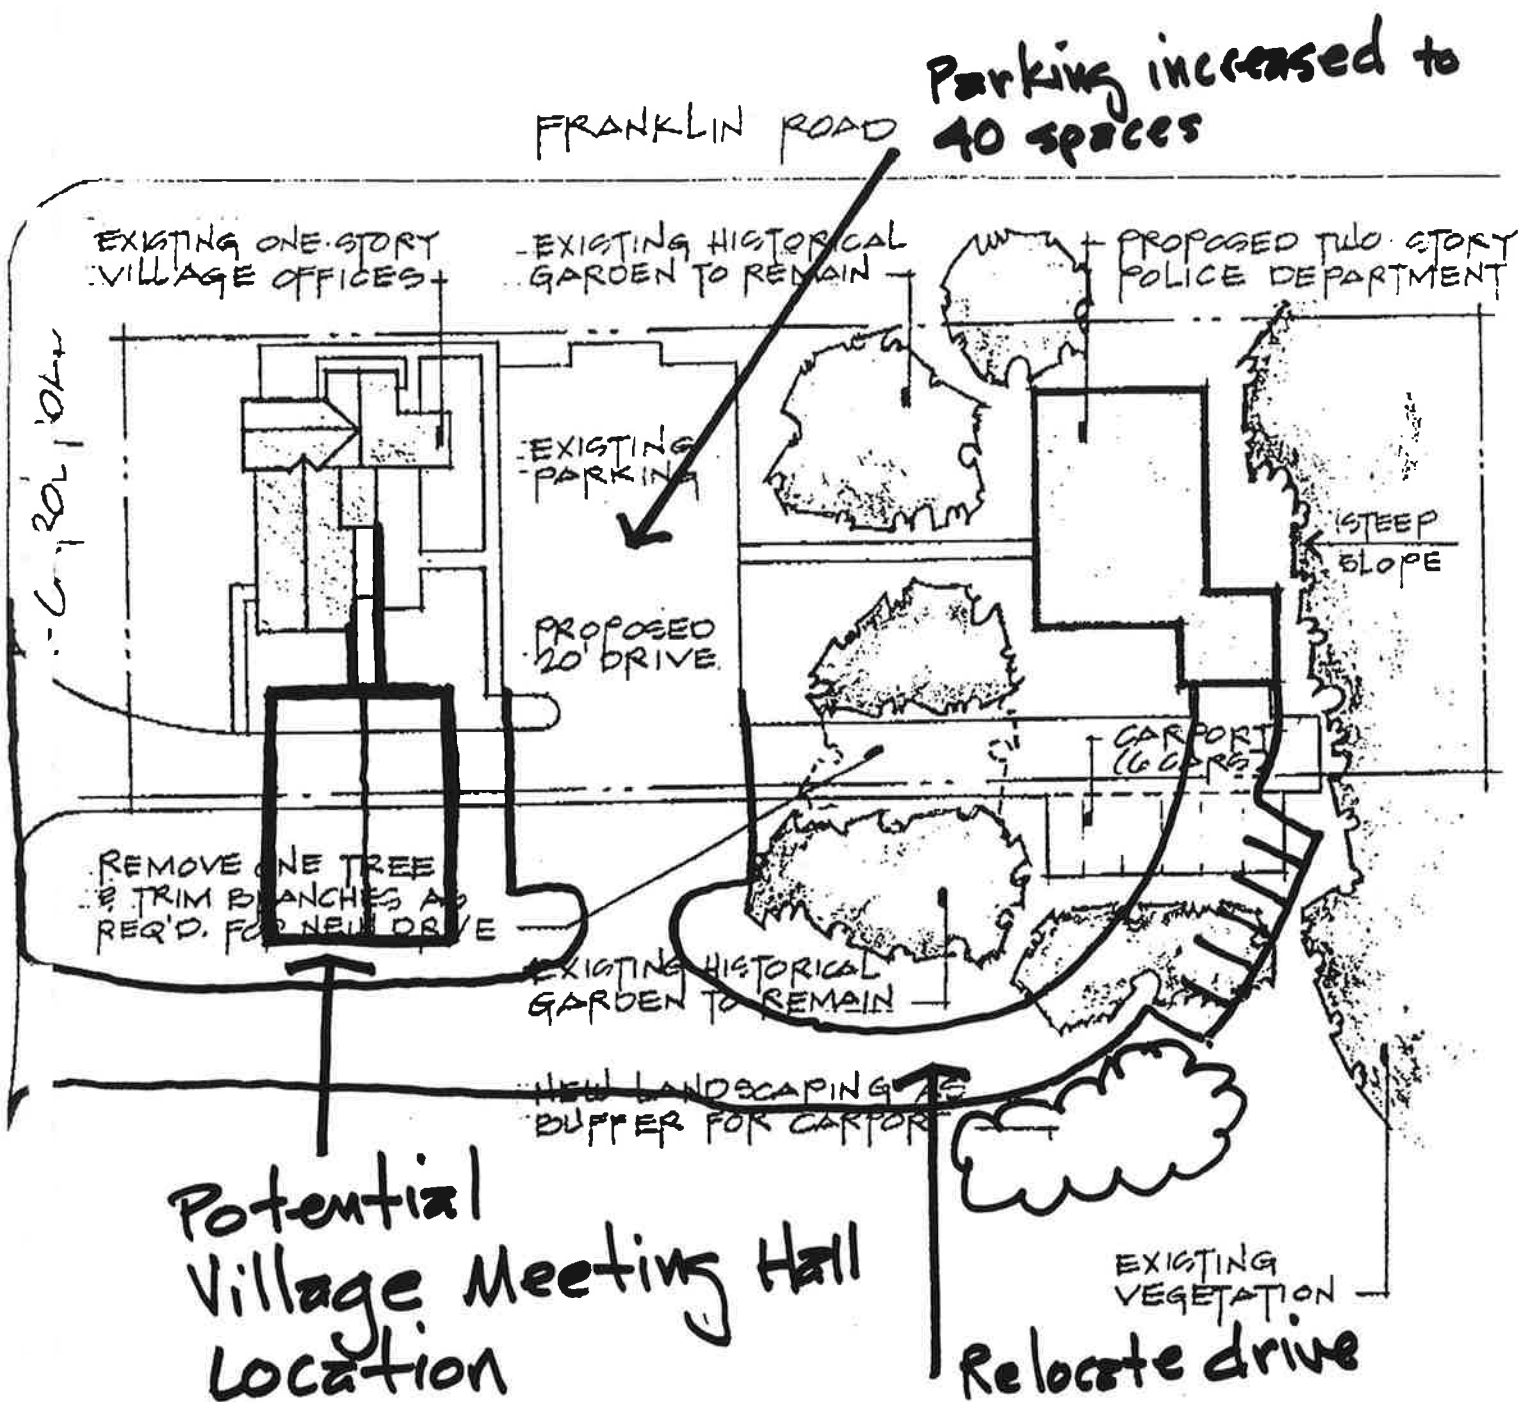 Parking increased to
40 spaces
FRANKLIN ROAD
EXISTING ONE-STORY
VILLAGE OFFICES
EXISTING HISTORICAL
GARDEN TO REMAIN
PROPOSED TWO STORY
POLICE DEPARTMENT
EXISTING
PARKING
STEEP
SLOPE
PROPOSED
20' DRIVE
CARPORT
(6 CARS)
REMOVE ONE TREE
& TRIM BRANCHES AS
REQ'D. FOR NEW DRIVE
EXISTING HISTORICAL
GARDEN TO REMAIN
NEW LANDSCAPING AS
BUFFER FOR CARPORT
Potential
Village Meeting Hall
Location
EXISTING
VEGETATION
Relocate drive